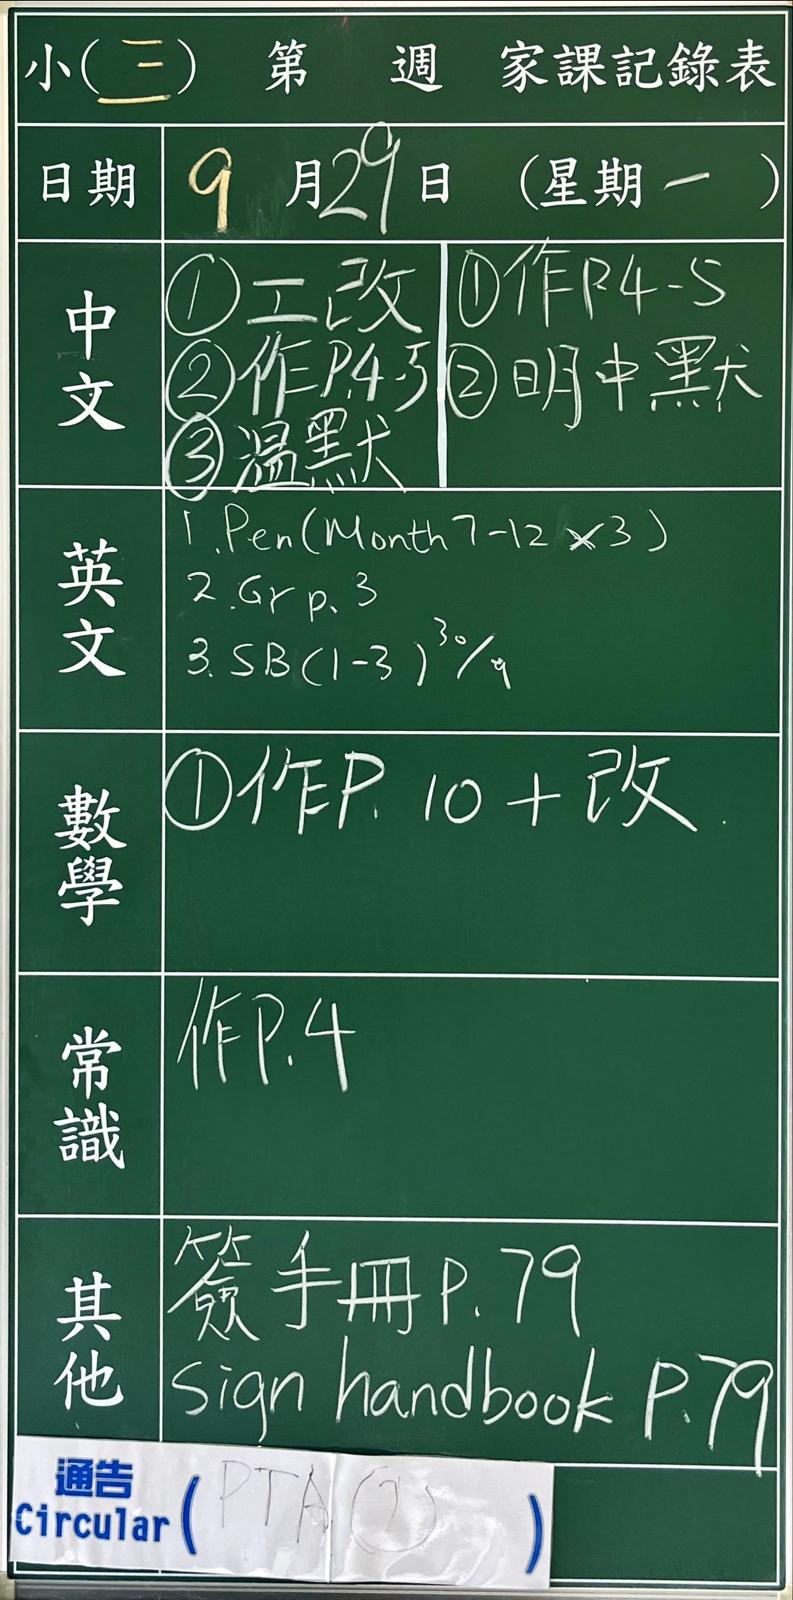 小(三) 第 週 家課記錄表
日期 9 月 29 日 (星期一)
中文
①工改
②作P.4-5
③溫默
①作P.4-5
②明中默
英文
1.Pen(Month 7-12 x3)
2.Gr p.3
3.SB(1-3) 30/9
數學
①作P.10+改
常識
作P.4
其他
簽手冊P.79
sign handbook P.79
通告
Circular ( PTA ① )